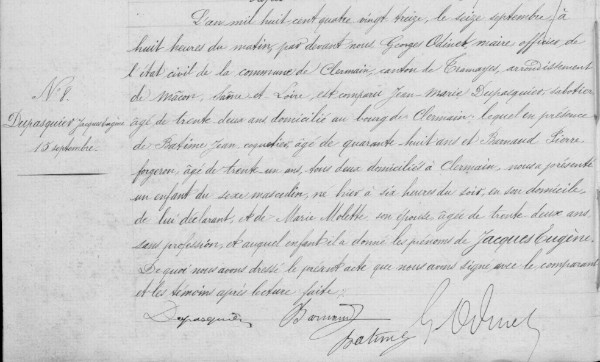 L'an mil huit cent quatre vingt treize, le seize septembre, à
huit heures du matin, par devant nous Georges Odinet, maire officier de
l'état civil de la commune de Clermain, canton de Tramayes, arrondissement
de Mâcon, Saône et Loire, est comparu Jean-Marie Depasquier, sabotier
âgé de trente deux ans domicilié au bourg de Clermain, lequel en présence
de Batime Jean, âgé de quarante huit ans et Barnaud Pierre
forgeron, âgé de trente un ans, tous deux domiciliés à Clermain, nous a présenté
un enfant du sexe masculin, né hier à six heures du soir, en son domicile,
de lui déclarant, et de Marie Molette son épouse, âgée de trente deux ans
sans profession, et auquel enfant il a donné les prénoms de Jacques Eugène.
De quoi nous avons dressé le présent acte que nous avons signé avec le comparant
et les témoins après lecture faite:
Depasquier Barnaud Batime G Odinet
N° 8.
Depasquier Jacques Eugène
15 septembre.